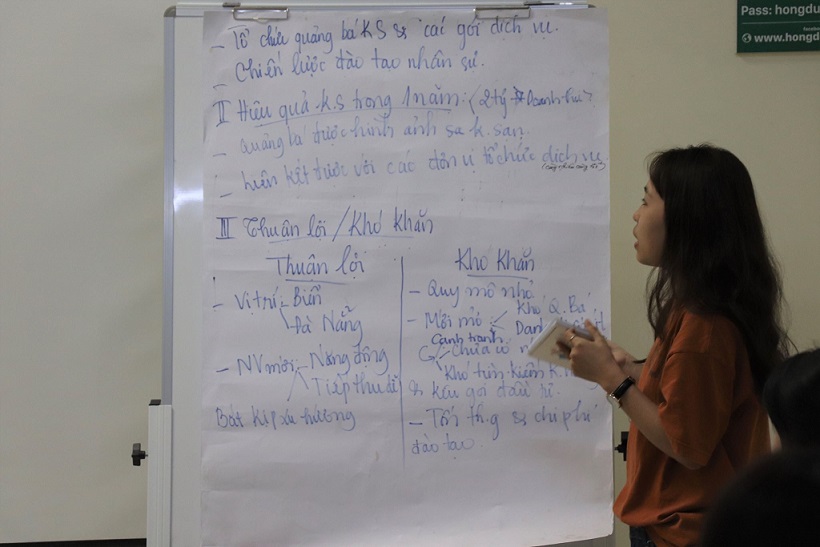 Pass: hongdu
www.hongd
- Tổ chức quảng bá KS & các gói dịch vụ.
- Chiến lược đào tạo nhân sự.
II Hiệu quả k.s trong 1 năm: 2 tỷ Doanh thu
- quảng bá được hình ảnh k.sạn.
- liên kết được với các đơn vị tổ chức dịch vụ
III Thuận lợi / Khó khăn
Thuận lợi
- Vị trí: Biển
Đà Nẵng
- NV mới - Năng động
Tiếp thu
Bắt kịp xu hướng
Khó Khăn
- Quy mô nhỏ
- Mới mở Khó Q.Bá
Cạnh tranh
chưa có
Khó tìm kiếm K.
& kêu gọi đầu
- Tốn th.g & chi phí
đào tạo.